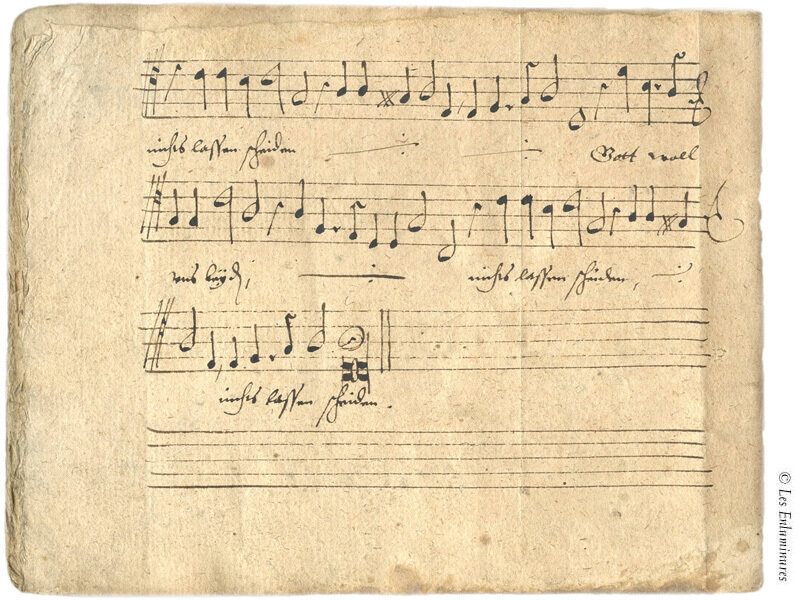 nichts lassen scheiden Gott woll
uns beyde, nichts lassen scheiden,
nichts lassen scheiden.
© Les Enluminures